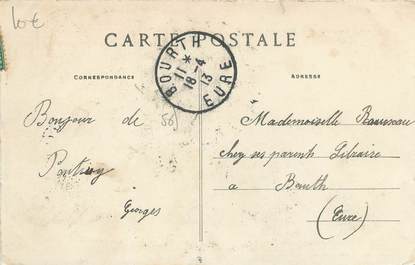 10 €
CARTE POSTALE
BOURTH
11 *
18-4
13
EURE
CORRESPONDANCE
ADRESSE
Bonjour de
56
Georges
Mademoiselle
chez ses parents Libraire
a Bourth
(Eure)